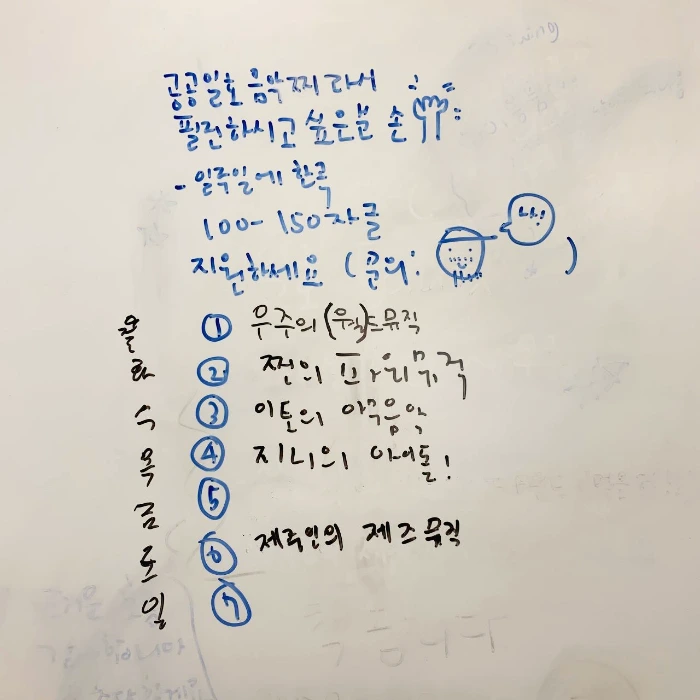 공공일호 음악 찌라시
필진하시고 싶은분 손
- 일주일에 한곡
100-150자글
지원하세요 (문의: 나! )
월 ① 우주의 (월)드뮤직
화 ② 쩐의 파워뮤직
수 ③ 이톤의 야곡음악
목 ④ 지니의 아이돌!
금 ⑤
토 ⑥ 제주인의 제즈뮤직
일 ⑦